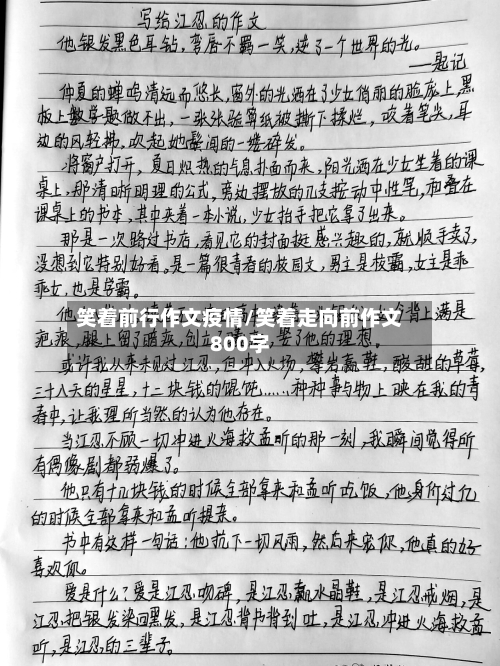 写给江忍的作文
他银发黑色耳钻，弯唇不羁一笑，迷了一个世界的光。
——题记
仲夏的蝉鸣清远而悠长，窗外的光洒在了少女俏丽的脸庞上，黑
板上数学题做不出，一张张验算纸被撕下揉烂，咬着笔尖，耳
边的风轻拂，吹起她鬓间的一缕碎发。
将窗户打开，夏日炽热的气息扑面而来，阳光洒在少女坐着的课
桌上，那清晰明理的公式，旁边摆放的几支按动中性笔，和叠在
课桌上的书本，其中夹着一本小说，少女抬手把它拿了出来。
那是一次路过书店，看见它的封面挺感兴趣的，就顺手卖了，
没想到它特别好看。是一篇很青春的校园文，男主是校霸，女主是乖
乖女，也是学霸。
他 背上满是
疤痕，腿上留了暗疾，创立 了他的理想。
笑着前行作文疫情/笑着走向前作文
800字
或许我从来未见过江忍，但冲入火场，攀岩赢鞋，酸甜的草莓，
三十八天的星星，十二块钱的馄饨……种种事与物上映在我的青
春中，让我理所当然的认为他存在。
当江忍不顾一切冲进火海救孟听的那一刻，我瞬间觉得所
有偶像剧都弱爆了。
他只有十几块钱的时候全部拿来和孟听吃饭，他身价过亿
的时候全部拿来和孟听提亲。
书中有这样一句话：他抗下一切风雨，然后来宠你，他真的好
喜欢你。
爱是什么？爱是江忍吻碑，是江忍赢水晶鞋，是江忍戒烟，是
江忍把银发染回黑发，是江忍背书背到吐，是江忍冲进火海救孟
听，是江忍的三辈子。